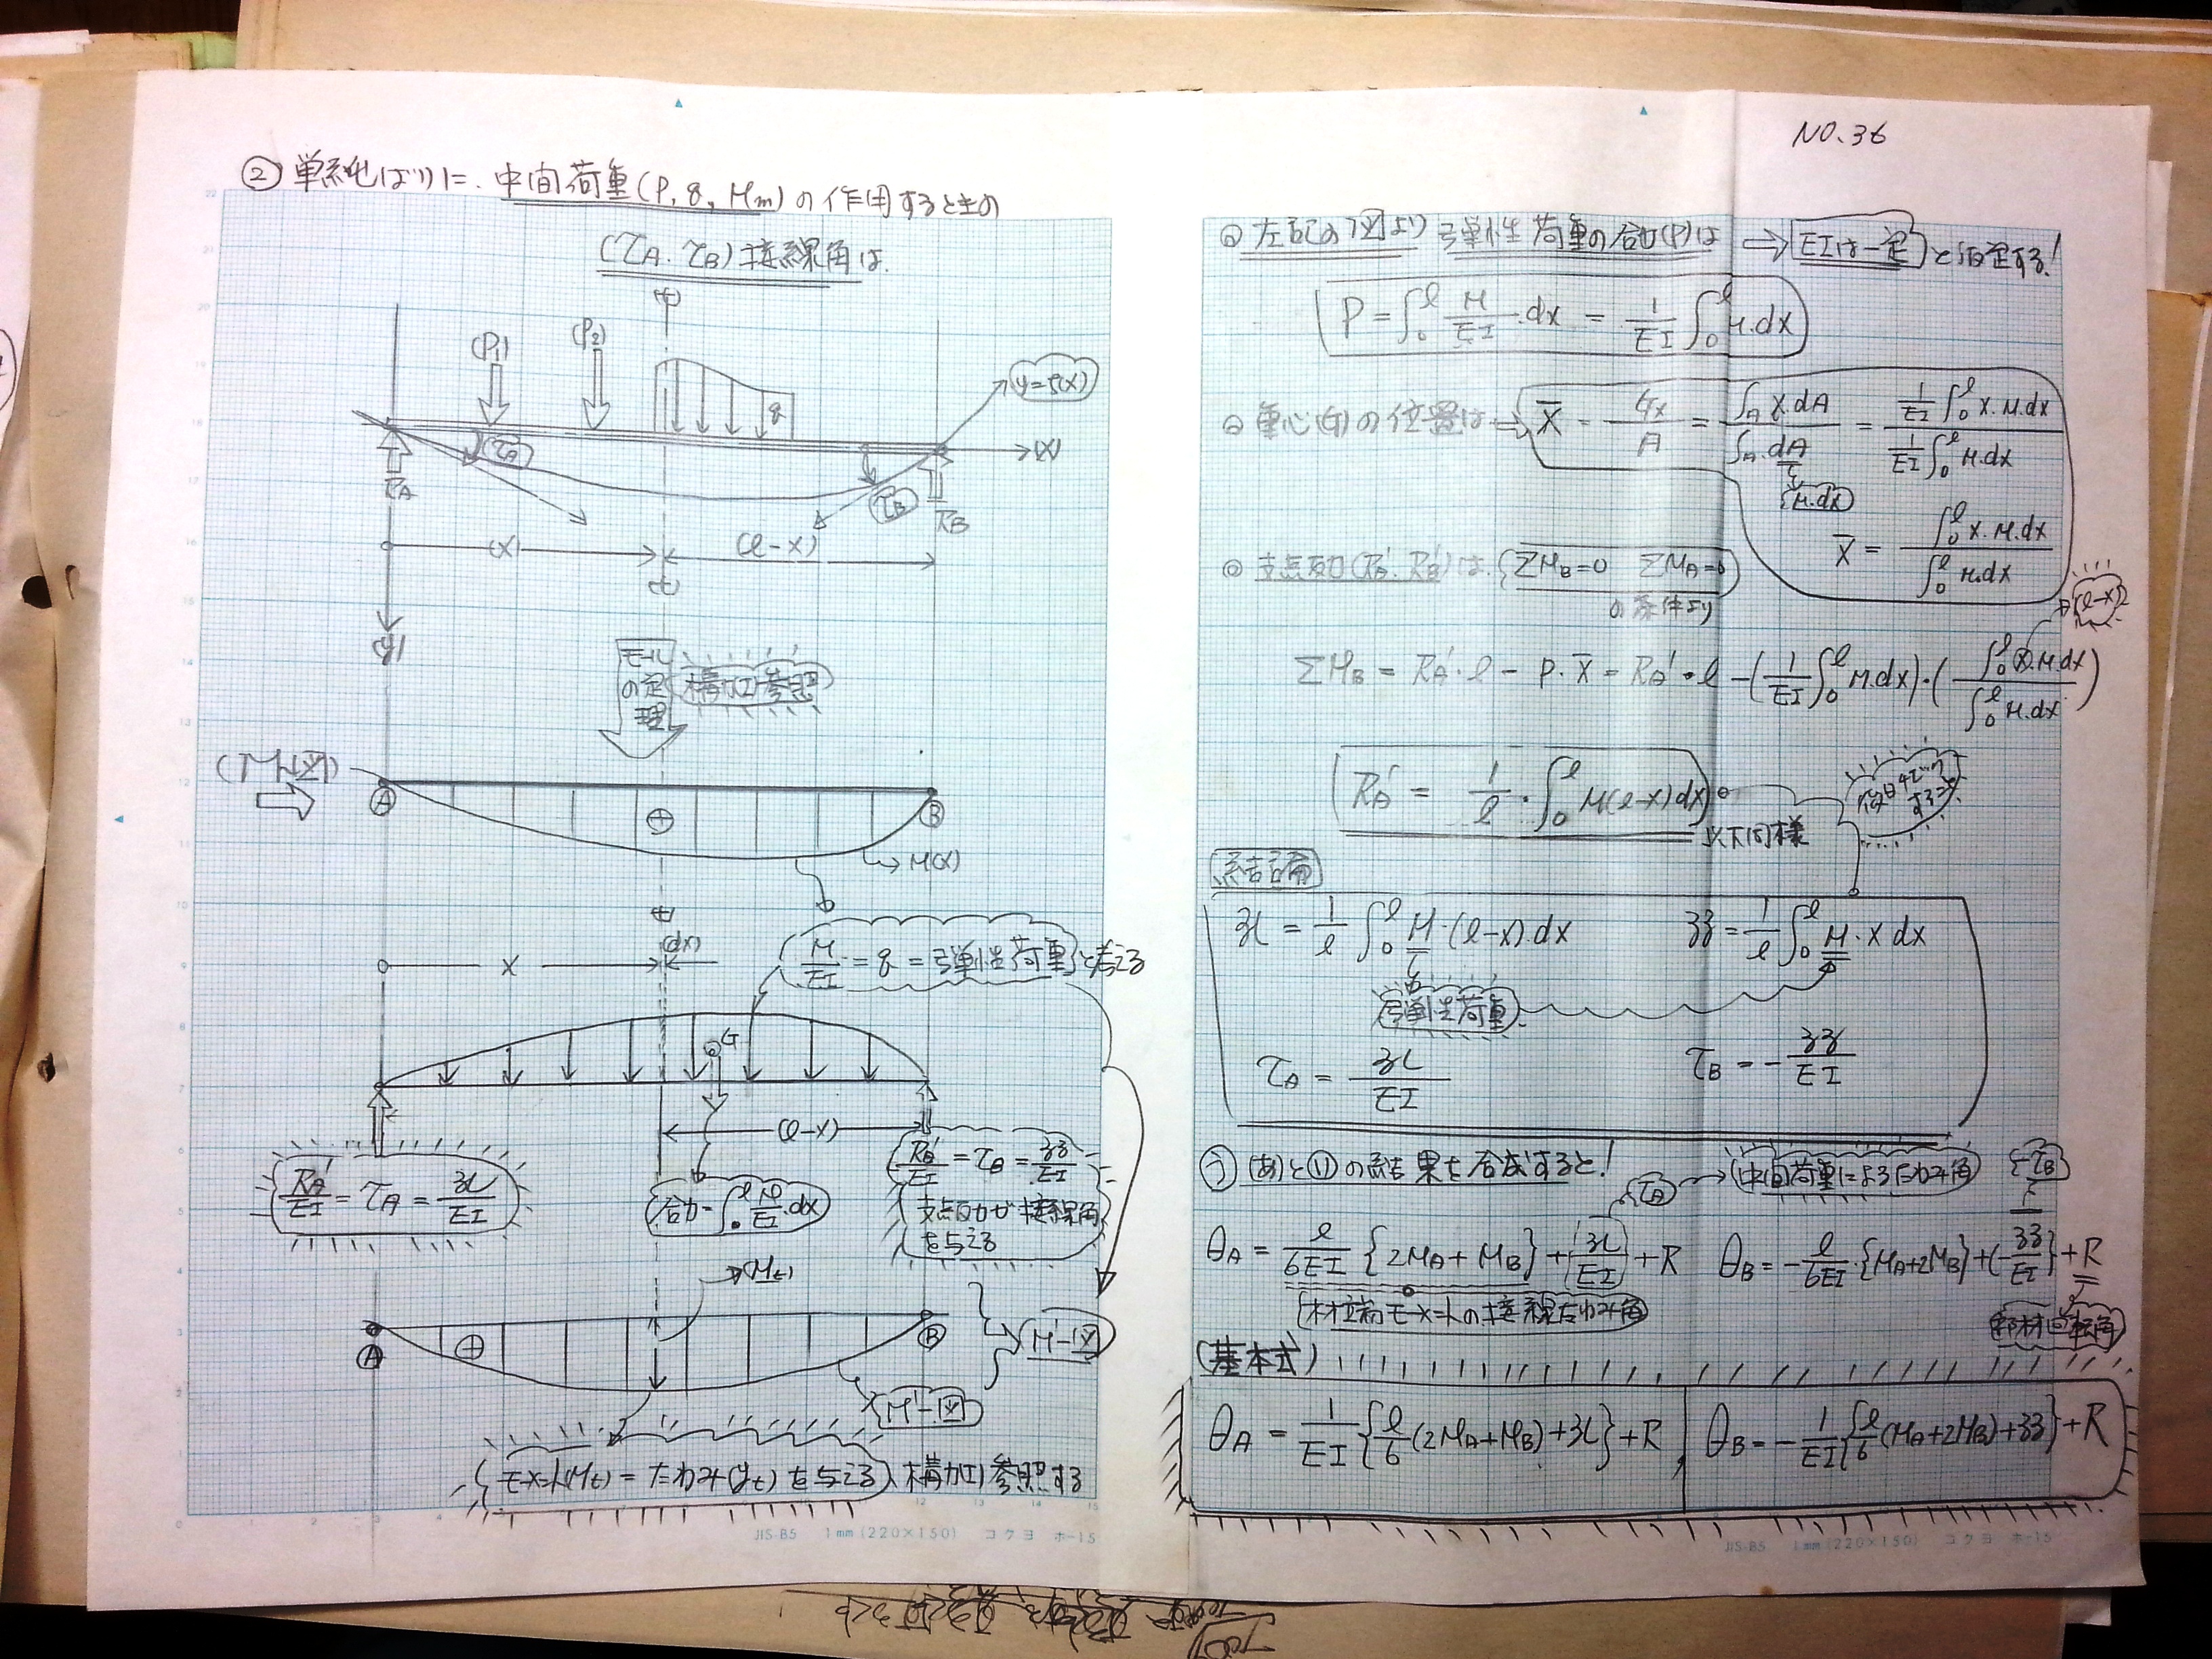 NO.36
② 単純ばりに、中間荷重(P, q, Mm)の作用するときの
(τA・τB)接線角は、
(P1)
(P2)
q
y=f(x)
(x)
(τA)
(τB)
RA
RB
(x)
(l-x)
t
t
(y)
モールの定理
構力(I)参照
(M-図)
A
⊕
B
M(x)
t
(dx)
x
M/EI = q = 弾性荷重と考える
G
(l-x)
RA'/EI = τA = 𝔄/EI
合力=∫₀ˡ M/EI・dx
RB'/EI = τB = 𝔅/EI
支点反力が接線角を与える
(Mt)
A
⊕
B
M'-図
M'-図
モーメント(Mt) = たわみ(yt)を与える 構力(I)参照する
JIS-B5 1mm(220×150) コクヨ ホ-15
◎ 左記の図より弾性荷重の合力(P)は ⇒ EIは一定と仮定する!
P = ∫₀ˡ M/EI・dx = 1/EI ∫₀ˡ M・dx
◎ 重心(G)の位置は ⇒ X̄ = Gx/A = ∫A x・dA / ∫A・dA = 1/EI ∫₀ˡ x・M・dx / 1/EI ∫₀ˡ M・dx
(M・dx)
X̄ = ∫₀ˡ x・M・dx / ∫₀ˡ M・dx
◎ 支点反力(RA'・RB')は、{ΣMB=0 ΣMA=0
の条件より
(l-x)
ΣMB = RA'・l − P・X̄ = RA'・l − (1/EI ∫₀ˡ M・dx)・(∫₀ˡ x・M・dx / ∫₀ˡ M・dx)
RA' = 1/l・∫₀ˡ M(l-x)dx
以下同様
結論
𝔄 = 1/l ∫₀ˡ M・(l-x)・dx 𝔅 = 1/l ∫₀ˡ M・x dx
弾性荷重
τA = 𝔄/EI τB = −𝔅/EI
う (あ)と(い)の結果を合成すると!
(τA) → 中間荷重によるたわみ角 (τB)
θA = l/6EI {2MA+MB} + (𝔄/EI) + R θB = −l/6EI・{MA+2MB} + (−𝔅/EI) + R
材端モーメントの接線たわみ角
部材回転角
(基本式)
θA = 1/EI {l/6 (2MA+MB) + 𝔄} + R θB = −1/EI {l/6 (MA+2MB) + 𝔅} + R
JIS-B5 1mm(220×150) コクヨ ホ-15